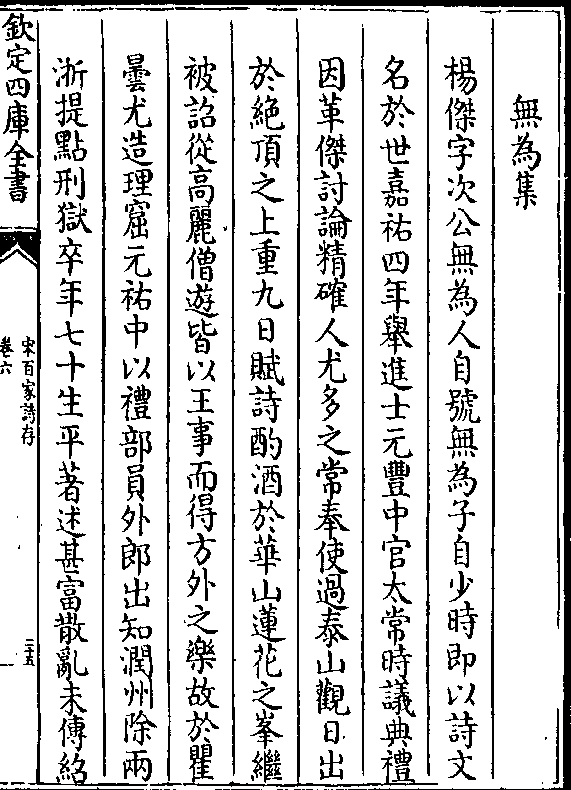 無為集
楊傑字次公無為人自號無為子自少時即以詩文
名於世嘉祐四年舉進士元豐中官太常時議典禮
因革傑討論精確人尤多之常奉使過泰山觀日出
於絶頂之上重九日賦詩酌酒於華山蓮花之峯繼
被詔從高麗僧遊皆以王事而得方外之樂故於瞿
曇尤造理窟元祐中以禮部員外郎出知潤州除兩
浙提點刑獄卒年七十生平著述甚富散亂未傳紹
欽定四庫全書
宋百家詩存
卷六
二十五